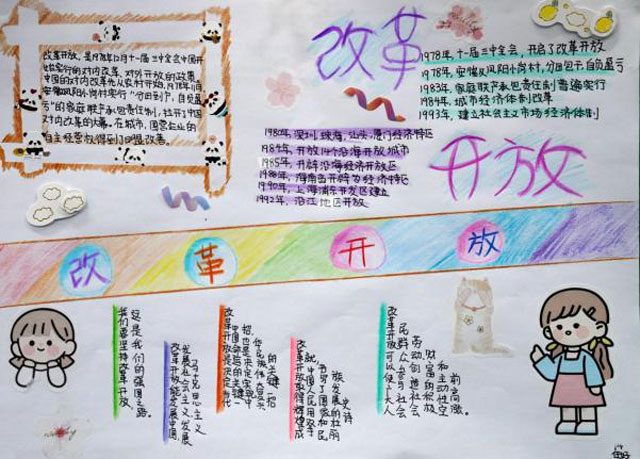 改革开放，是1978年12月十一届三中全会中国开
始实行的对内改革、对外开放的政策。
中国的对内改革先从农村开始，1978年11月
安徽凤阳小岗村实行"分田到户，自负盈
亏"的家庭联产承包责任制，拉开了中国
对内改革的大幕。在城市，国营企业的
自主经营权得到了明显改善。
改革
1978年，十一届三中全会，开启了改革开放
1978年，安徽凤阳小岗村，分田包干自负盈亏
1983年，家庭联产承包责任制普遍实行
1984年，城市经济体制改革
1993年，建立社会主义市场经济体制
1980年，深圳、珠海、汕头、厦门经济特区
1984年，开放14个沿海开放城市
1985年，开辟沿海经济开放区
1988年，海南岛开辟为经济特区
1990年，上海浦东开发区建立
1992年，沿江地区开放
开放
改革开放
这是我们的强国之路。
我们要坚持改革开放，
马克思主义
发展社会主义发展
改革开放能发展中国、
的关键一招
华民族伟大复兴
招，也是决定实现中
中国命运的关键一
改革开放是决定当代
史诗
族发展的壮丽
书写了国家和民
就，中国人民用双手
改革开放取得辉煌成
前高涨。
和主动性空
财富的积极
劳动创造社会
民群众参与社会
改革开放可以使广大人